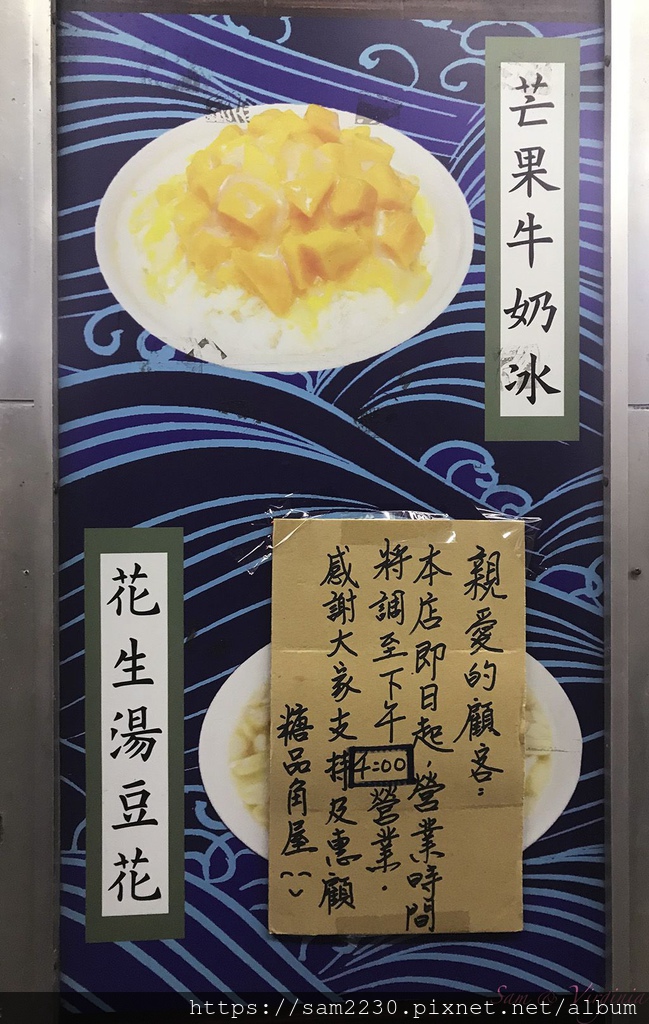 芒果牛奶冰
親愛的顧客:
本店即日起,營業時間
將調至下午4:00營業.
感謝大家支持及惠顧
糖品角屋
花生湯豆花
Sam & Virginia
https://sam2230.pixnet.net/album